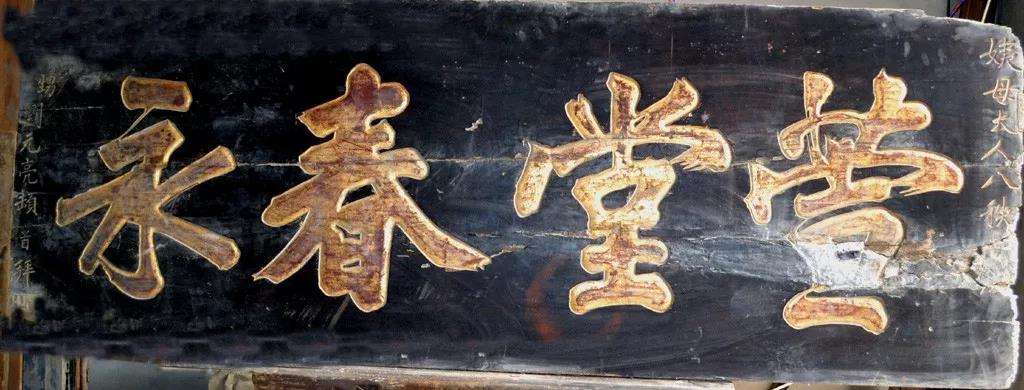 姨母大人八
萱堂春永
甥 元亮 首拜